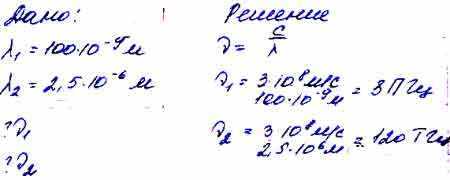 Дано:
λ₁ = 100·10⁻⁹ м
λ₂ = 2,5·10⁻⁶ м
? ν₁
? ν₂
Решение
ν = c/λ
ν₁ = 3·10⁸ м/с / 100·10⁻⁹ м = 3 ПГц
ν₂ = 3·10⁸ м/с / 2,5·10⁶ м = 120 ТГц